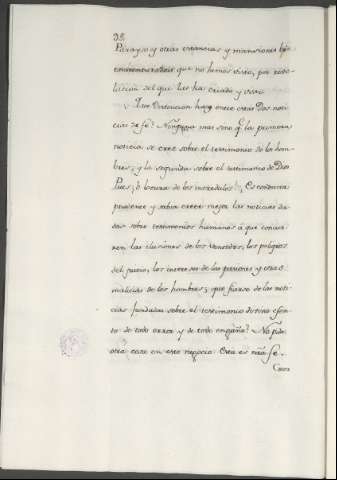 32.
Parayso y otras estancias y mansiones
que no hemos visto, por reve-
lacion del que las ha criado y visto.
Que distincion hay entre creer Dos noti-
cias de fe? Ninguna mas sino q.^e la primera
noticia se cree sobre el testimonio de los hom-
bres; y la segunda sobre el testimonio de Dios
Pues, ò locura de los incredulos! Es conducta
prudente y sabia creer mejor las noticias da-
das sobre testimonios humanos á que concur-
ren las ilusiones de los sentidos, los peligros
del juicio, los intereses de las pasiones y otras
malicias de los hombres; que fiarse de las noti-
cias fundadas sobre el testimonio divino esen-
to de todo error y de todo engaño? No pide
otra cosa en este negocio. Esta es n̄ra fe.